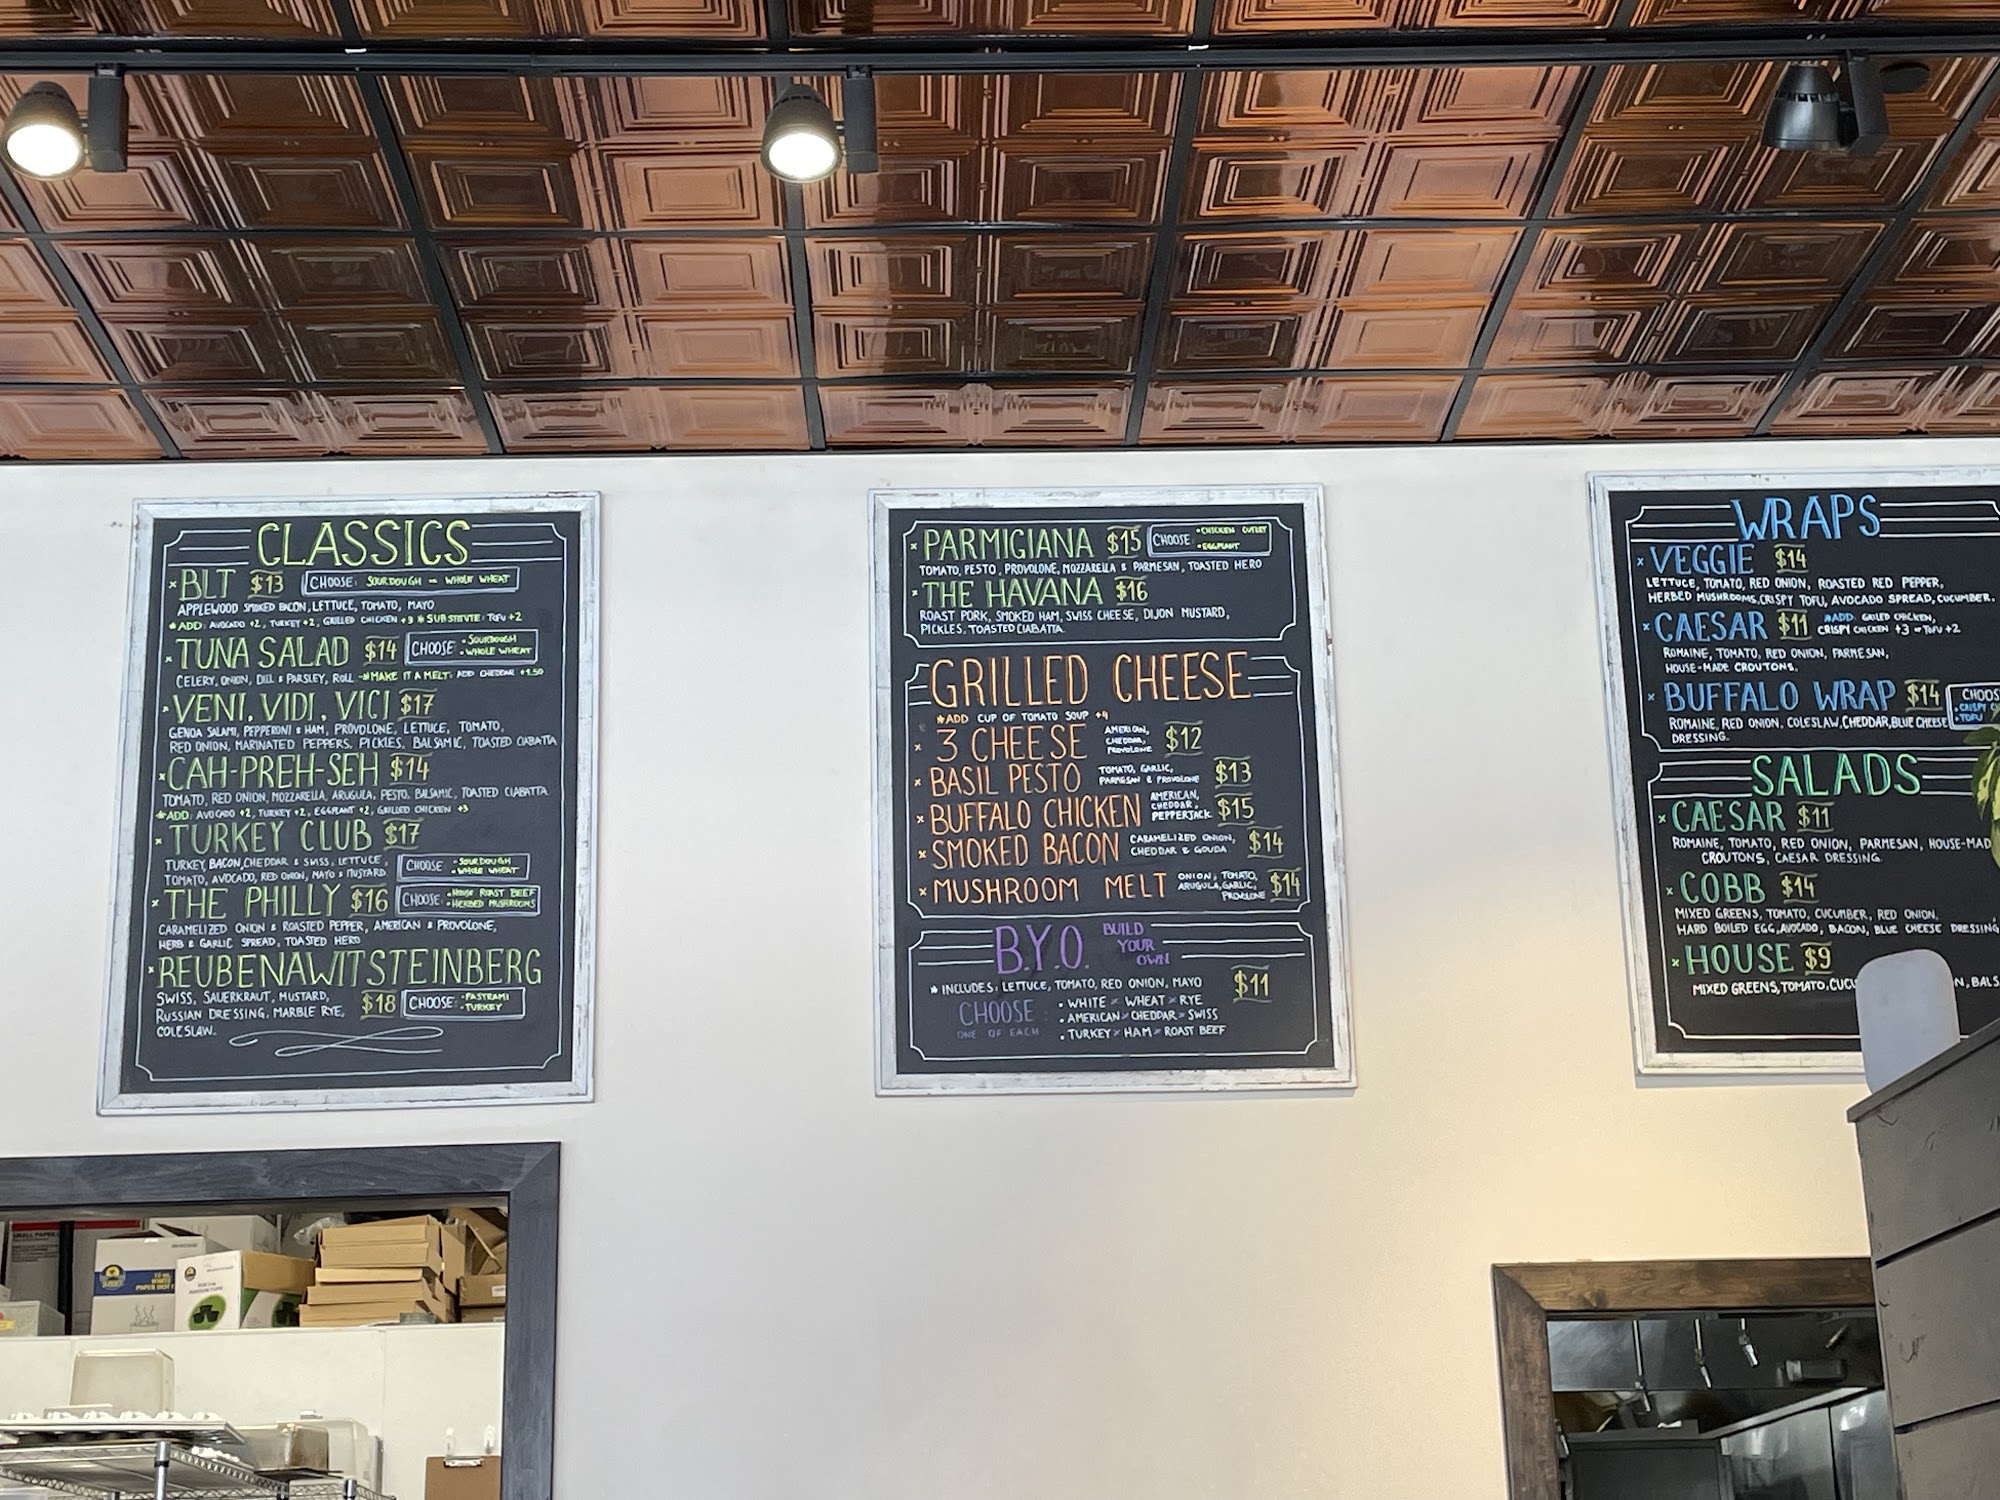 CLASSICS
× BLT $13 CHOOSE: SOURDOUGH or WHOLE WHEAT
APPLEWOOD SMOKED BACON, LETTUCE, TOMATO, MAYO
*ADD: AVOCADO +2, TURKEY +2, GRILLED CHICKEN +3 * SUBSTITUTE: TOFU +2
× TUNA SALAD $14 CHOOSE: • SOURDOUGH
• WHOLE WHEAT
CELERY, ONION, DILL & PARSLEY, ROLL *MAKE IT A MELT: ADD CHEDDAR +1.50
× VENI, VIDI, VICI $17
GENOA SALAMI, PEPPERONI & HAM, PROVOLONE, LETTUCE, TOMATO,
RED ONION, MARINATED PEPPERS, PICKLES, BALSAMIC, TOASTED CIABATTA
× CAH-PREH-SEH $14
TOMATO, RED ONION, MOZZARELLA, ARUGULA, PESTO, BALSAMIC, TOASTED CIABATTA
*ADD: AVOCADO +2, TURKEY +2, EGGPLANT +2, GRILLED CHICKEN +3
× TURKEY CLUB $17
TURKEY, BACON, CHEDDAR & SWISS, LETTUCE,
TOMATO, AVOCADO, RED ONION, MAYO & MUSTARD.
CHOOSE: • SOURDOUGH
• WHOLE WHEAT
× THE PHILLY $16 CHOOSE: • HOUSE ROAST BEEF
• HERBED MUSHROOMS
CARAMELIZED ONION & ROASTED PEPPER, AMERICAN & PROVOLONE,
HERB & GARLIC SPREAD, TOASTED HERO
× REUBENAWITSTEINBERG
SWISS, SAUERKRAUT, MUSTARD,
RUSSIAN DRESSING, MARBLE RYE,
COLESLAW.
$18 CHOOSE: • PASTRAMI
• TURKEY
× PARMIGIANA $15 CHOOSE: • CHICKEN CUTLET
• EGGPLANT
TOMATO, PESTO, PROVOLONE, MOZZARELLA & PARMESAN, TOASTED HERO
× THE HAVANA $16
ROAST PORK, SMOKED HAM, SWISS CHEESE, DIJON MUSTARD,
PICKLES, TOASTED CIABATTA
GRILLED CHEESE
*ADD CUP OF TOMATO SOUP +4
× 3 CHEESE AMERICAN, CHEDDAR, PROVOLONE $12
× BASIL PESTO TOMATO, GARLIC, PARMESAN & PROVOLONE $13
× BUFFALO CHICKEN AMERICAN, CHEDDAR, PEPPERJACK $15
× SMOKED BACON CARAMELIZED ONION, CHEDDAR & GOUDA $14
× MUSHROOM MELT ONION, TOMATO, ARUGULA, GARLIC, PROVOLONE $14
B.Y.O. BUILD YOUR OWN
* INCLUDES: LETTUCE, TOMATO, RED ONION, MAYO $11
CHOOSE ONE OF EACH
• WHITE × WHEAT × RYE
• AMERICAN × CHEDDAR × SWISS
• TURKEY × HAM × ROAST BEEF
WRAPS
× VEGGIE $14
LETTUCE, TOMATO, RED ONION, ROASTED RED PEPPER,
HERBED MUSHROOMS, CRISPY TOFU, AVOCADO SPREAD, CUCUMBER.
× CAESAR $11 *ADD: GRILLED CHICKEN,
CRISPY CHICKEN +3 or TOFU +2
ROMAINE, TOMATO, RED ONION, PARMESAN,
HOUSE-MADE CROUTONS.
× BUFFALO WRAP $14 CHOOS
• CRISPY C
• TOFU
ROMAINE, RED ONION, COLESLAW, CHEDDAR, BLUE CHEESE
DRESSING.
SALADS
× CAESAR $11
ROMAINE, TOMATO, RED ONION, PARMESAN, HOUSE-MAD
CROUTONS, CAESAR DRESSING
× COBB $14
MIXED GREENS, TOMATO, CUCUMBER, RED ONION,
HARD BOILED EGG, AVOCADO, BACON, BLUE CHEESE DRESSING
× HOUSE $9
MIXED GREENS, TOMATO, CUCU N, BALS